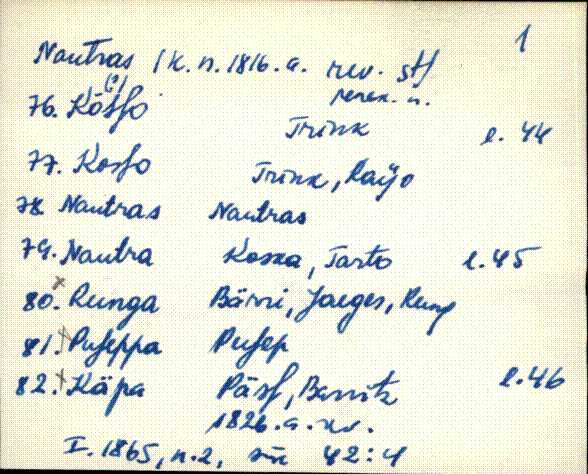 1
Nautras 1 k. n. 1816. a. rev. stf
(?) perek. n.
76. Kösfo Trink l. 44
77. Kosfo Trinx, Raijo
78. Nautras Nautras
79. Nautra Kossa, Tarto l. 45
80. x Runga Bärri, Jaeges, Rung
81. x Pufeppa Pufep
82. x Käpa Päsf, Barritz l. 46
1826. a.
I. 1865, n. 2, 42:4